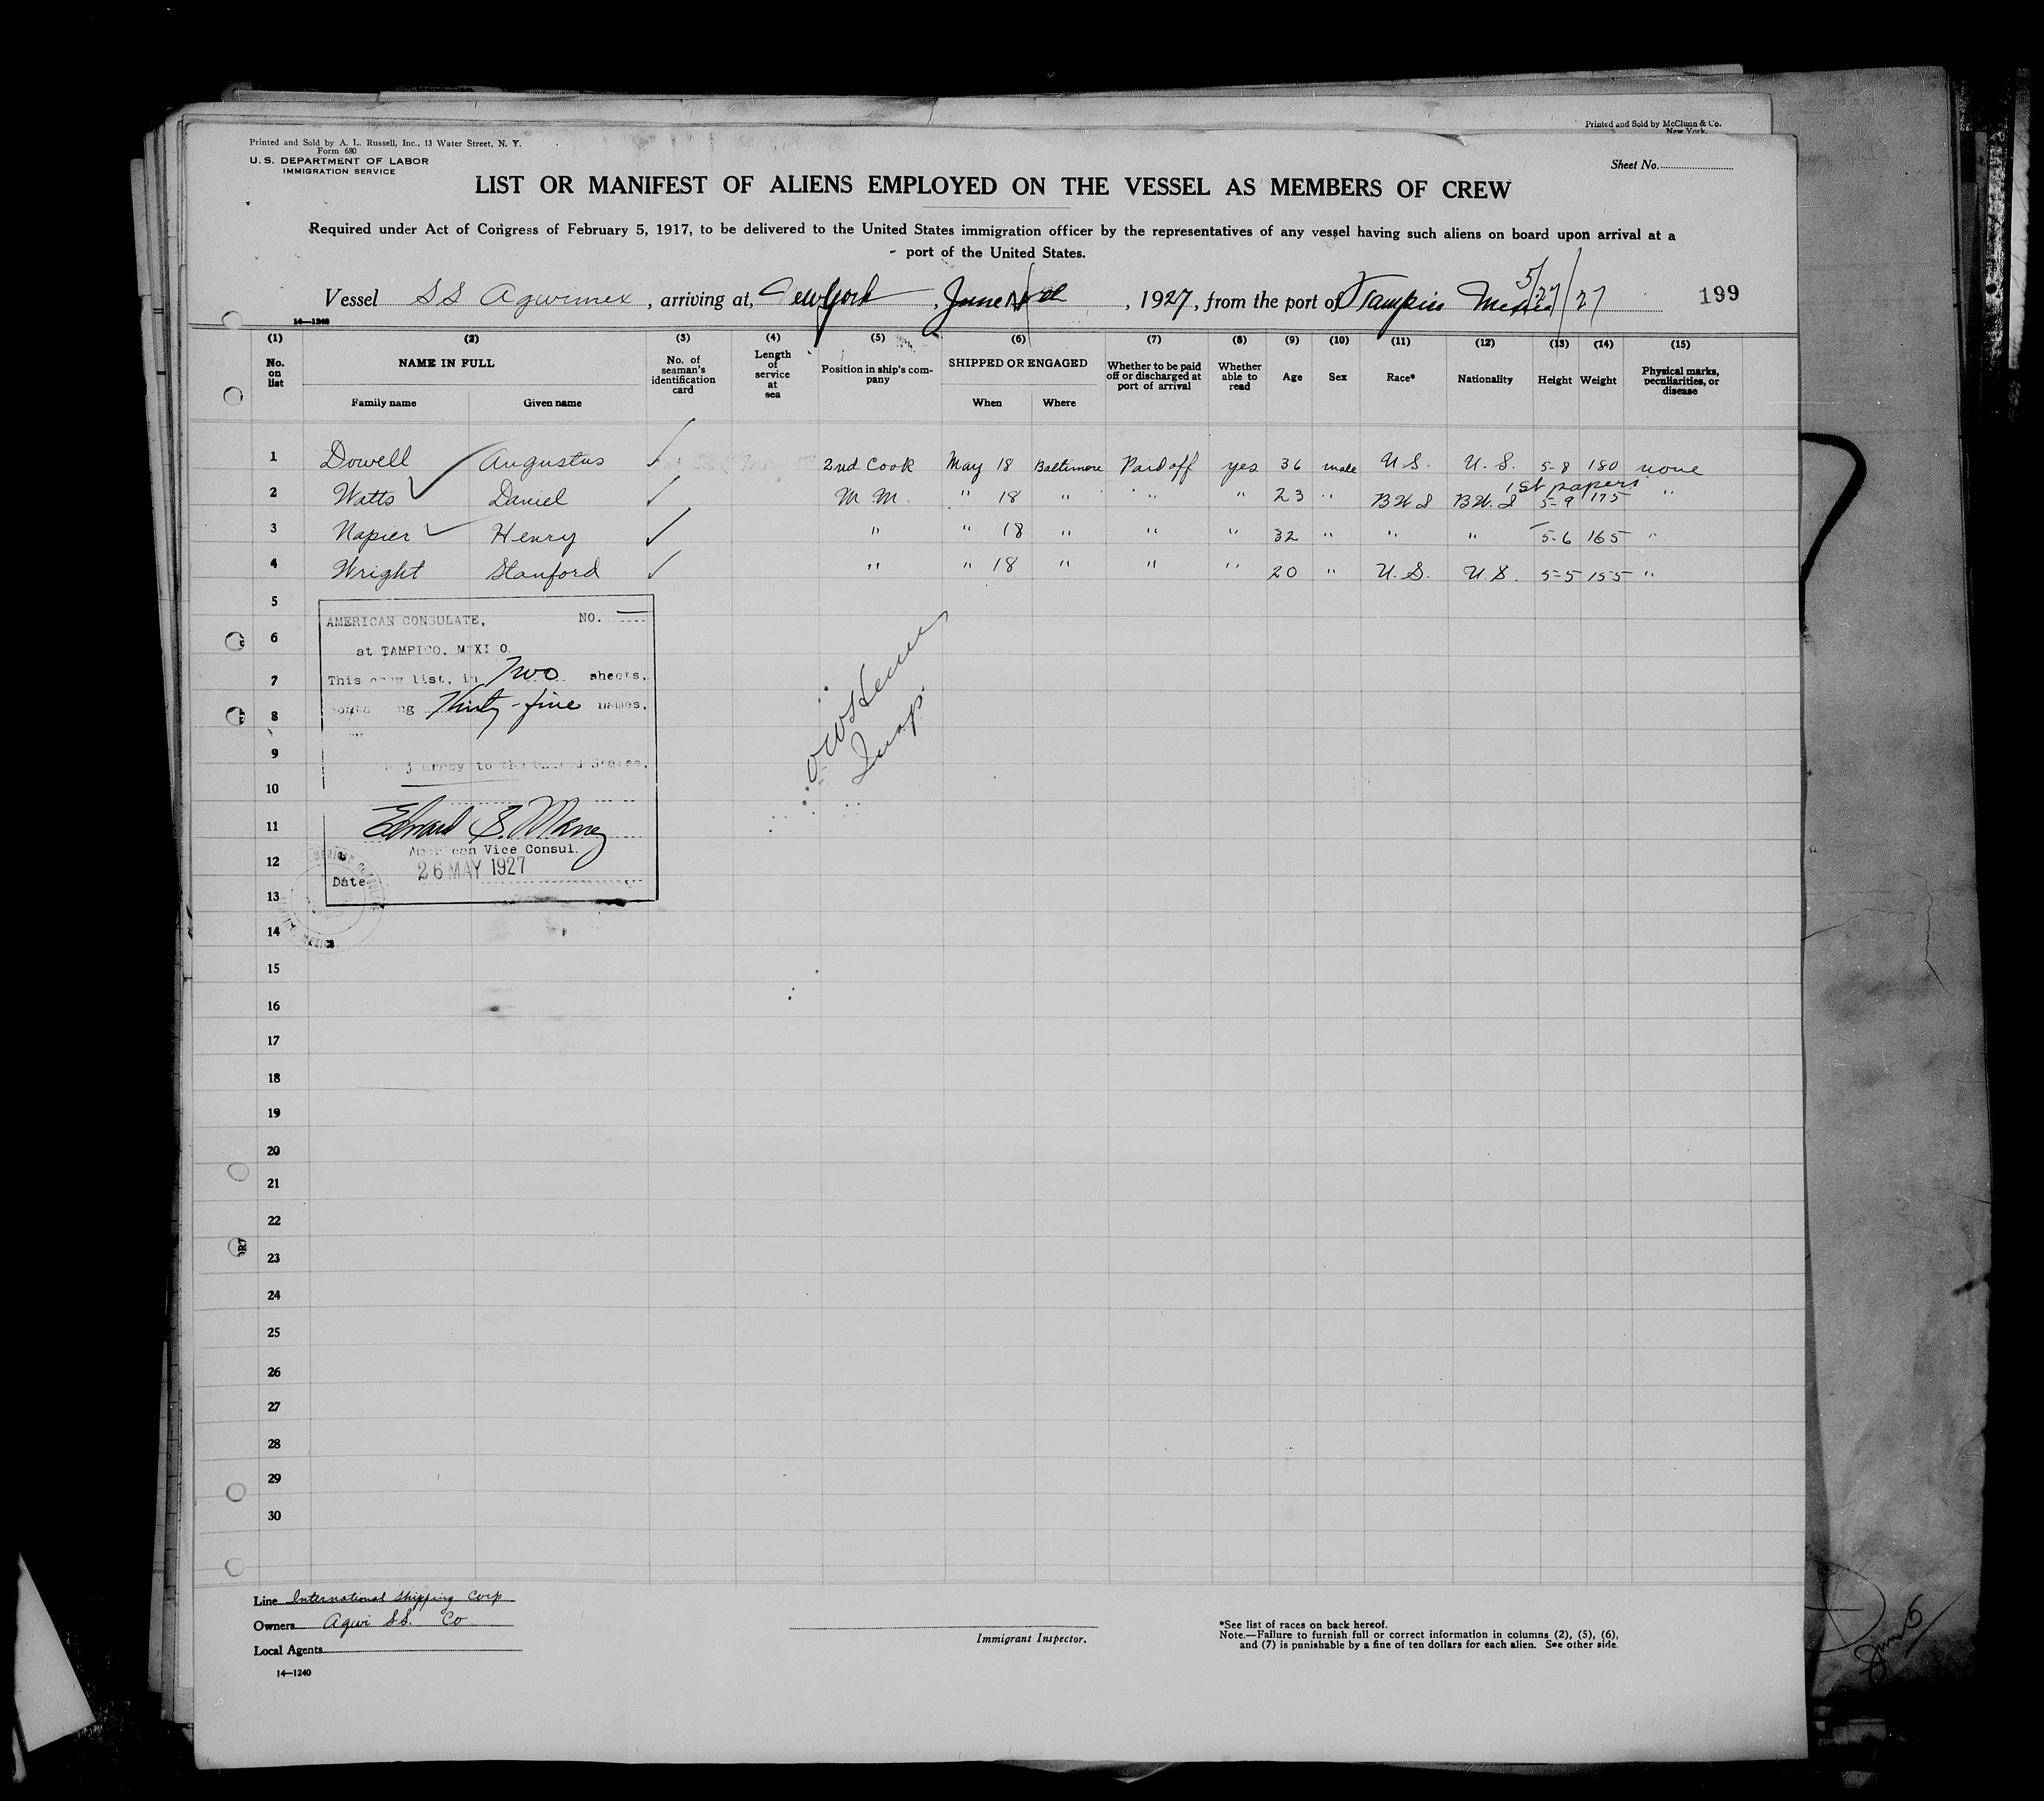 Printed and Sold by McClunn & Co.
New York.
Printed and Sold by A. L. Russell, Inc., 13 Water Street, N. Y.
Form 680
U. S. DEPARTMENT OF LABOR
IMMIGRATION SERVICE
Sheet No.
LIST OR MANIFEST OF ALIENS EMPLOYED ON THE VESSEL AS MEMBERS OF CREW
Required under Act of Congress of February 5, 1917, to be delivered to the United States immigration officer by the representatives of any vessel having such aliens on board upon arrival at a
port of the United States.
Vessel SS Agwimex, arriving at, New York, June, 1927, from the port of Tampico Mexico 5/27/27 199
14—1240
(1) (2) (3) (4) (5) (6) (7) (8) (9) (10) (11) (12) (13) (14) (15)
No. on list NAME IN FULL Family name Given name No. of seaman's identification card Length of service at sea Position in ship's company SHIPPED OR ENGAGED When Where Whether to be paid off or discharged at port of arrival Whether able to read Age Sex Race* Nationality Height Weight Physical marks, peculiarities, or disease
1 Dowell Augustus ✓ 2nd Cook May 18 Baltimore Paid off yes 36 male U.S. U.S. 5-8 180 none
1st papers
2 Watts ✓ Daniel ✓ M M. " 18 " " " 23 " B W I B W. I 5-9 175 "
3 Napier ✓ Henry ✓ " " 18 " " " 32 " " " 5-6 165 "
4 Wright Stanford ✓ " " 18 " " " 20 " U.S. U.S. 5-5 155 "
5
6
7
8
9
10
11
12
13
14
15
16
17
18
19
20
21
22
23
24
25
26
27
28
29
30
AMERICAN CONSULATE, NO.
at TAMPICO, MEXICO
This crew list, in Two sheets,
Thirty-five names,
journey to the United States.
Edward S. Maney
American Vice Consul.
Date 26 MAY 1927
Insp.
Line International Shipping Corp
Owners Agwi SS. Co
Local Agents
14—1240
Immigrant Inspector.
*See list of races on back hereof.
Note.—Failure to furnish full or correct information in columns (2), (5), (6),
and (7) is punishable by a fine of ten dollars for each alien. See other side.
June 5